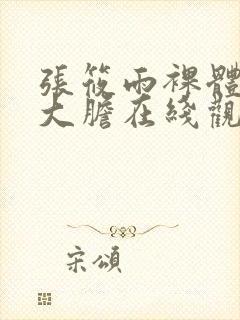 張筱雨裸體
大膽在綫觀
宋頌